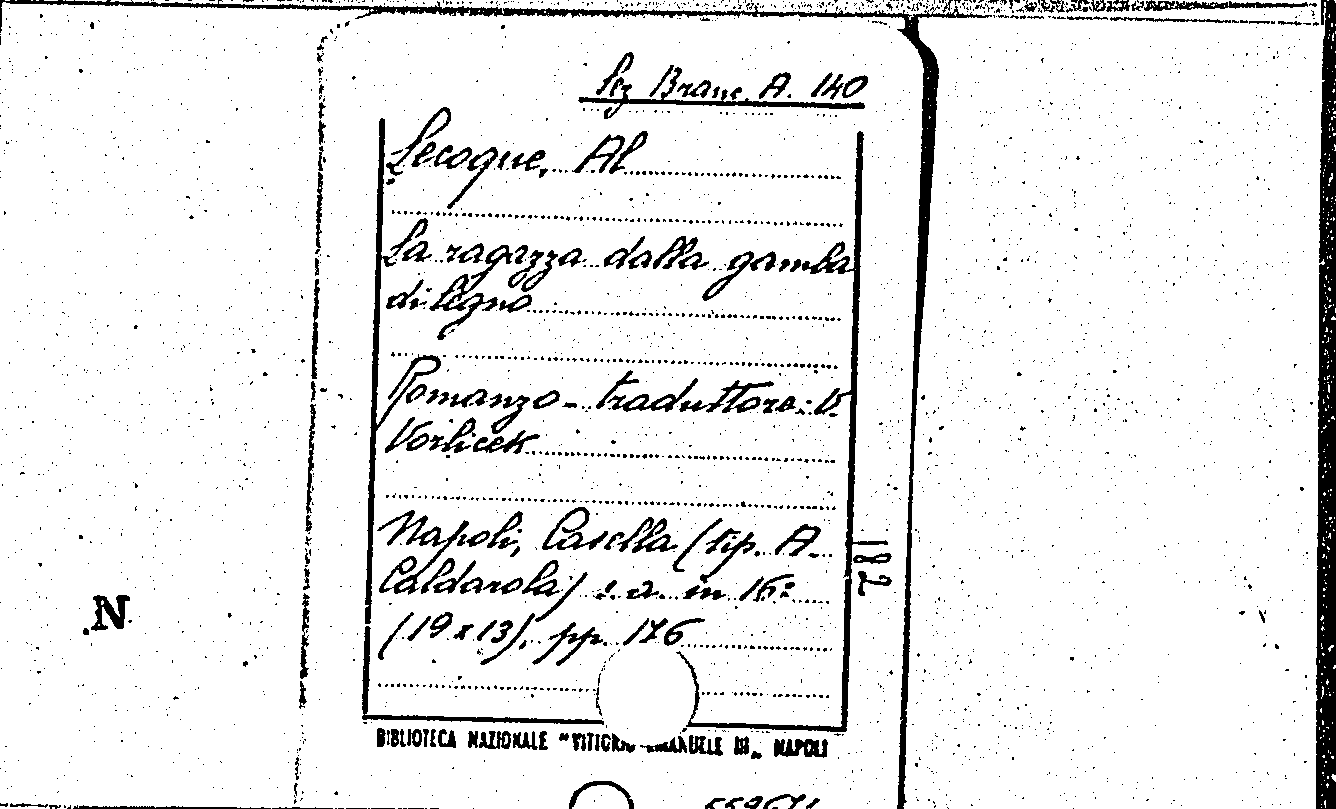 Sez Branc. A. 140
Lecoque, Al
La ragazza dalla gamba
di legno
Romanzo - traduttore: V.
Vorlicek
Napoli, Casella (tip. A.
Caldarola) s. a. in 16º
(19 x 13), pp. 176
182
N
BIBLIOTECA NAZIONALE "VITTORIO EMANUELE III„ NAPOLI